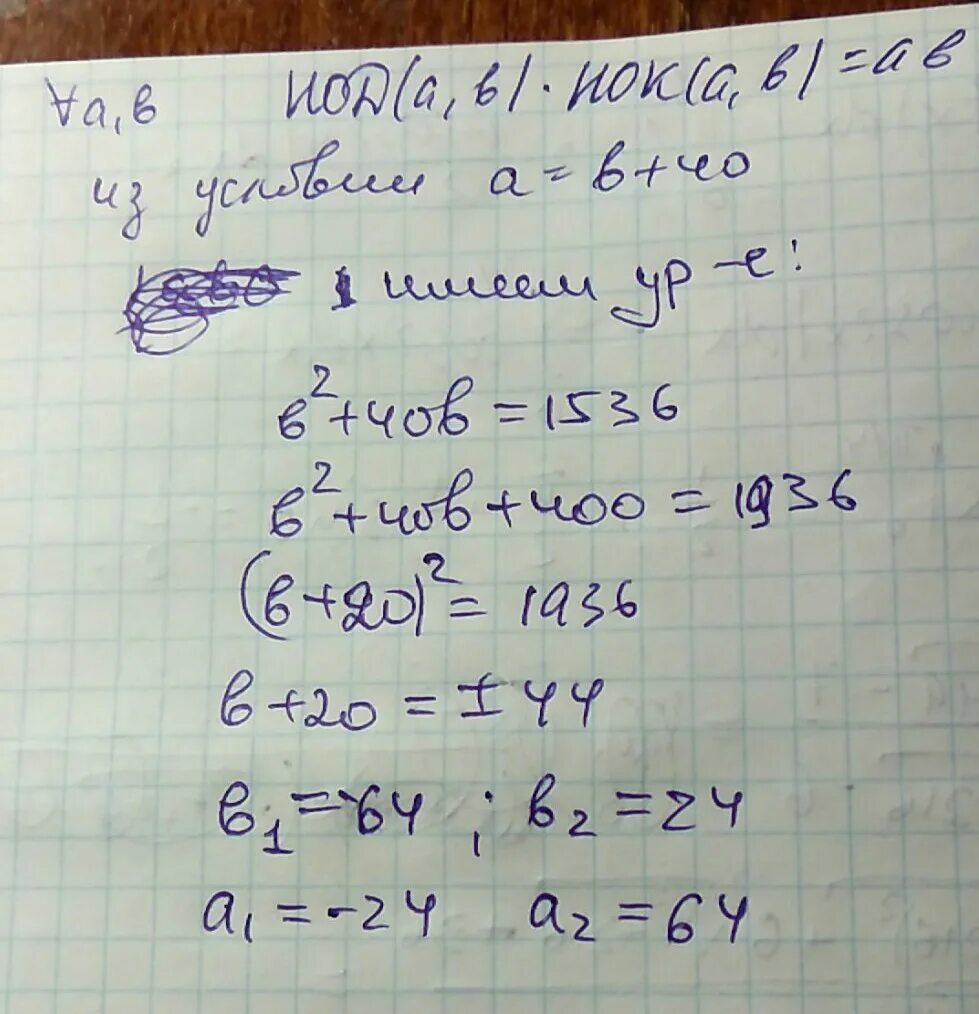 ∀a, в НОД(a, в) · НОК(a, в) = a в
из условии a = в + 40
имеем ур-е:
в² + 40в = 1536
в² + 40в + 400 = 1936
(в + 20)² = 1936
в + 20 = ± 44
в₁ = -64 ; в₂ = 24
a₁ = -24 a₂ = 64